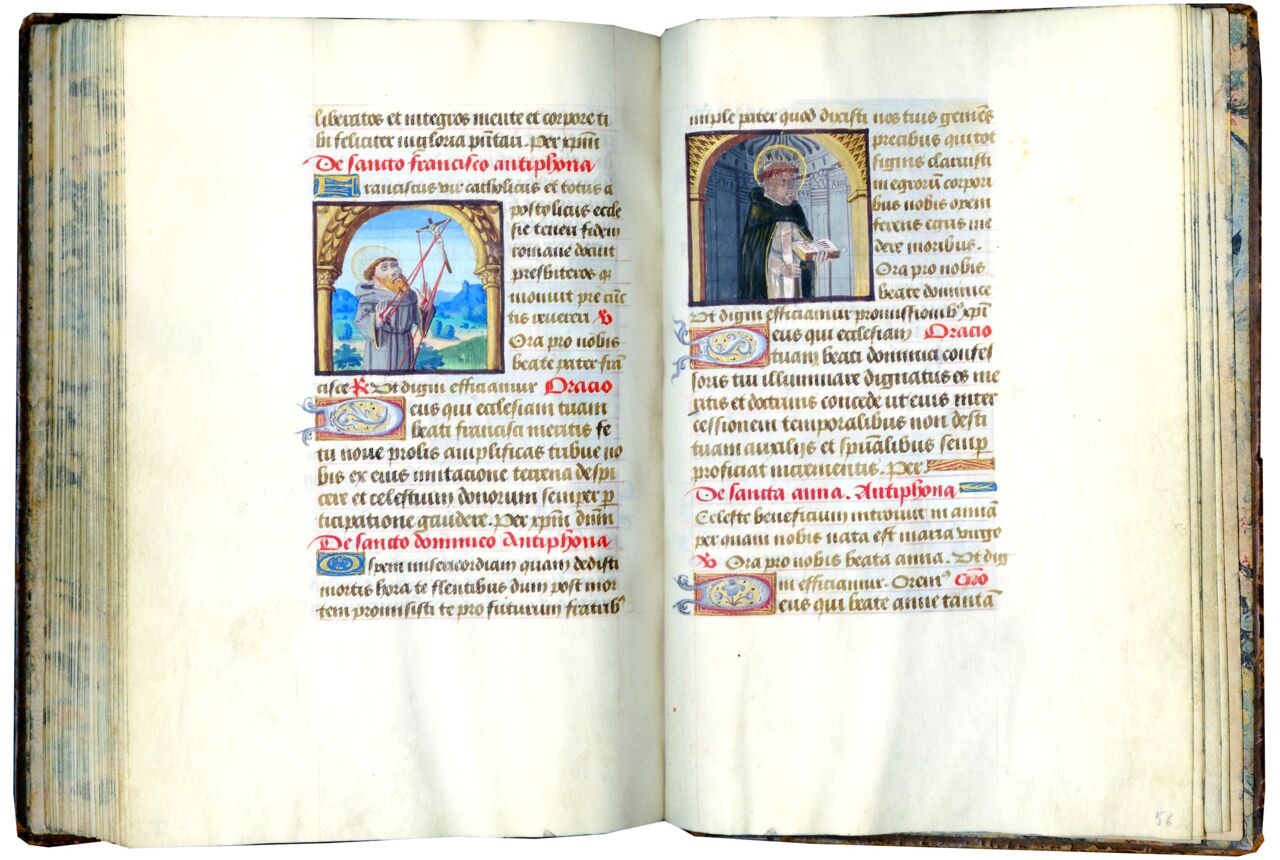 liberatos et integros mente et corpore ti
bi feliciter in gloria pñtari. Per xpm̄
De sancto francisco antiphona
Franciscus vir catholicus et totus a
postolicus eccle
sie teneri fidem
romane docuit
presbiteros qȝ
monuit pre cūc
tis revereri ℣
Ora pro nobis
beate pater frā
cisce ℟ Ut digni efficiamur Oracio
Deus qui ecclesiam tuam
beati francisci meritis fe
tu nove prolis amplificas tribue no
bis ex eius imitacione terrena despi
cere et celestium donorum semper p
ticipatione gaudere. Per xpm̄ dnm̄
De sancto dominico Antiphona
O spem misericordiam quam dedisti
mortis hora te flentibus dum post mor
tem promisisti te pro futurum fratribꝰ
imple pater quod dixisti nos tuis gemēs
precibus qui tot
signis claruisti
in egrorū corpori
bus nobis opem
ferens egris me
dere moribus.
Ora pro nobis
beate dominice
Ut digni efficiamur promissionibꝰ xpm̄
Deus qui ecclesiam Oracio
tuam beati dominici confes
soris tui illuminare dignatus es me
ritis et doctrinis concede ut eius inter
cessionem temporalibus non desti
tuam auxilijs et spūalibus semp
proficiat incrementis. Per
De sancta anna. Antiphona
Celeste beneficium introivit in annā
per quam nobis nata est maria virgo
℣ Ora pro nobis beata anna. Ut dig
ni efficiamur. Oremꝰ Oro
Deus qui beate anne tantā
56